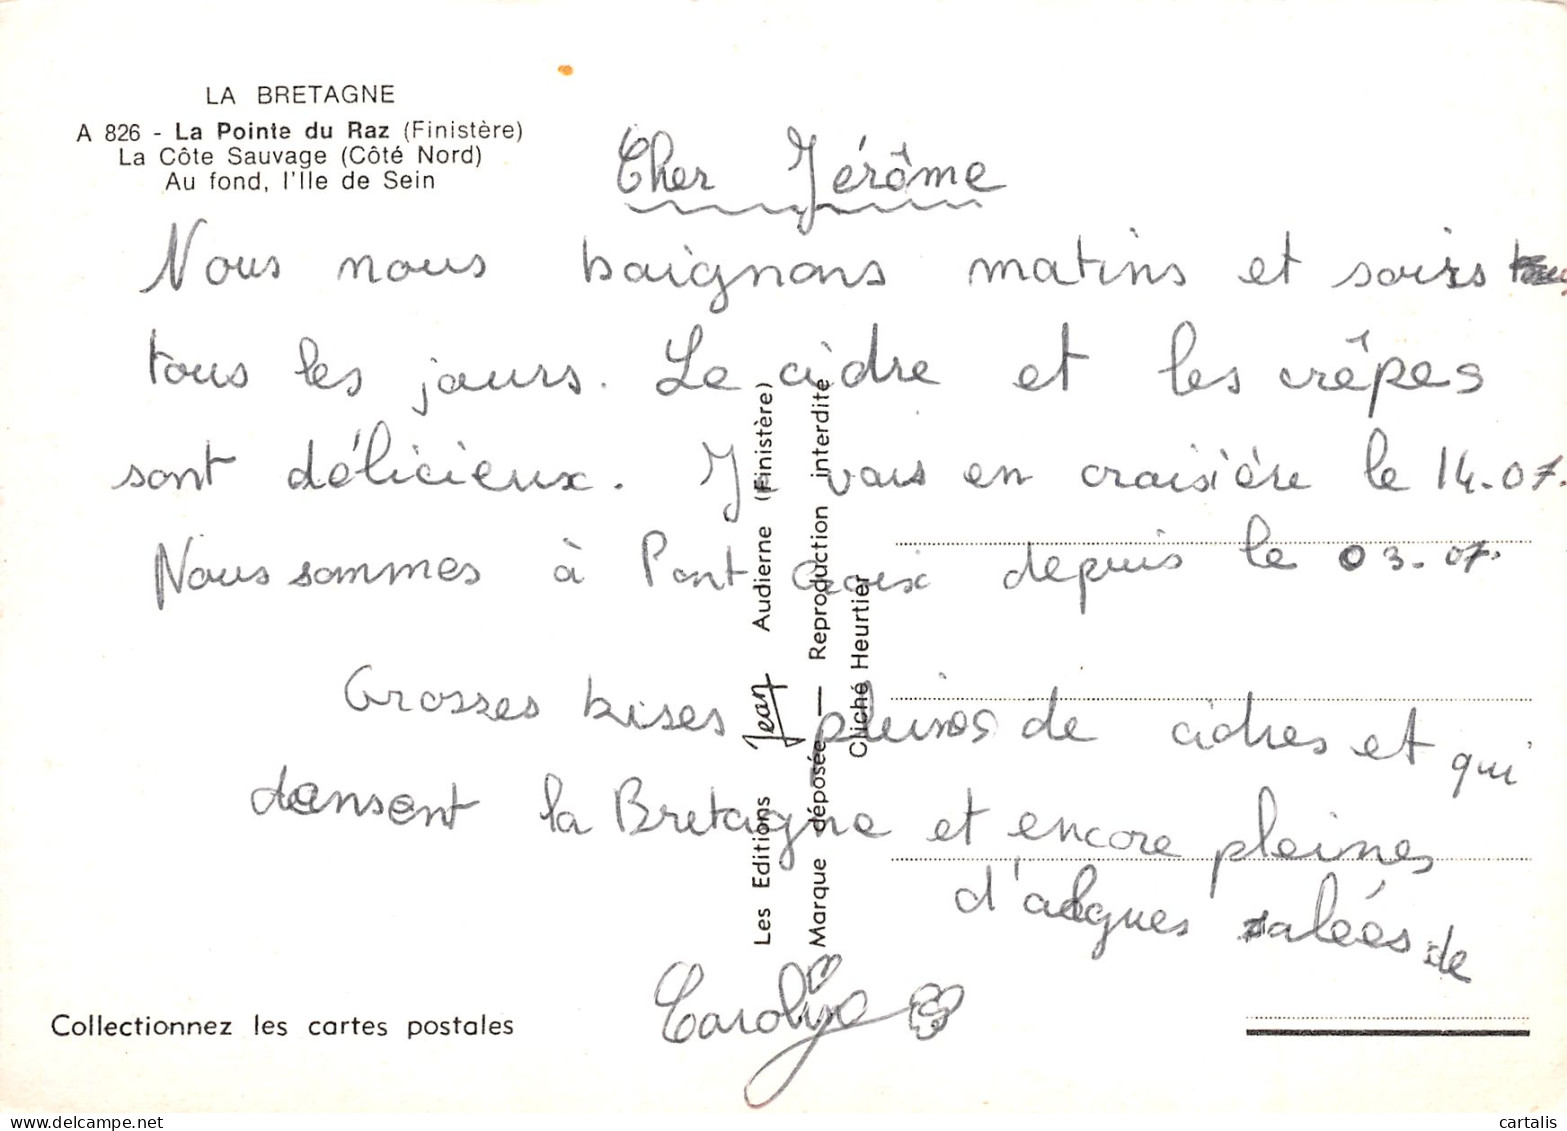 LA BRETAGNE
A 826 - La Pointe du Raz (Finistère)
La Côte Sauvage (Côté Nord)
Au fond, l'Ile de Sein
Cher Jérôme
Nous nous baignons matins et soirs
tous les jours. Le cidre et les crêpes
sont délicieux. Je vais en croisière le 14.07.
Nous sommes à Pont Croix depuis le 03.07.
Grosses bises pleines de cidres et qui
dansent la Bretagne et encore pleines
d'algues salées de
Les Editions Jean Audierne (Finistère)
Marque déposée — Reproduction interdite
Cliché Heurtier
Collectionnez les cartes postales
cartalis